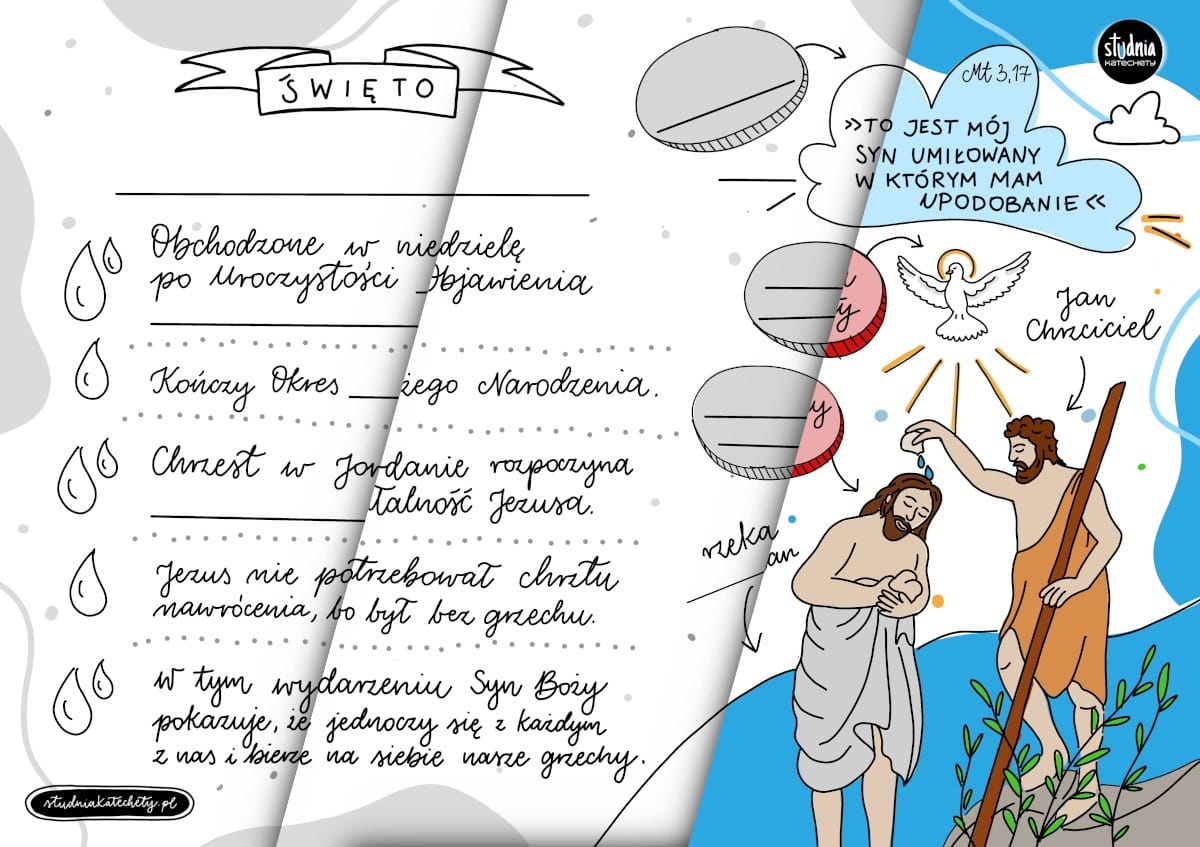 ŚWIĘTO
Obchodzone w niedzielę
po Uroczystości Objawienia
Kończy Okres żego Narodzenia.
Chrzest w Jordanie rozpoczyna
talność Jezusa.
Jezus nie potrzebował chrztu
nawrócenia, bo był bez grzechu.
W tym wydarzeniu Syn Boży
pokazuje, że jednoczy się z każdym
z nas i bierze na siebie nasze grzechy.
studniakatechety.pl
studnia
KATECHETY
Mt 3,17
»TO JEST MÓJ
SYN UMIŁOWANY
W KTÓRYM MAM
UPODOBANIE«
Jan
Chrzciciel
y
y
rzeka
an